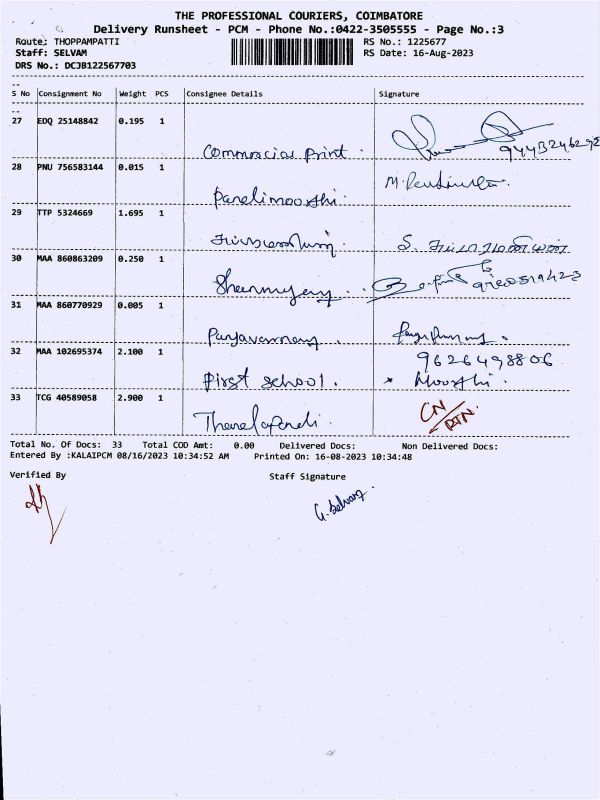 THE PROFESSIONAL COURIERS, COIMBATORE
Delivery Runsheet - PCM - Phone No.:0422-3505555 - Page No.:3
Route: THOPPAMPATTI RS No.: 1225677
Staff: SELVAM RS Date: 16-Aug-2023
DRS No.: DCJB122567703
S No Consignment No Weight PCS Consignee Details Signature
27 EDQ 25148842 0.195 1
Commercial print.
28 PNU 756583144 0.015 1
29 TTP 5324669 1.695 1
30 MAA 860863209 0.250 1
31 MAA 860770929 0.005 1
32 MAA 102695374 2.100 1 9626498806
First school. Moorthi.
33 TCG 40589058 2.900 1 CN/RTN.
Total No. Of Docs: 33 Total COD Amt: 0.00 Delivered Docs: Non Delivered Docs:
Entered By :KALAIPCM 08/16/2023 10:34:52 AM Printed On: 16-08-2023 10:34:48
Verified By Staff Signature
G. Selvaraj.